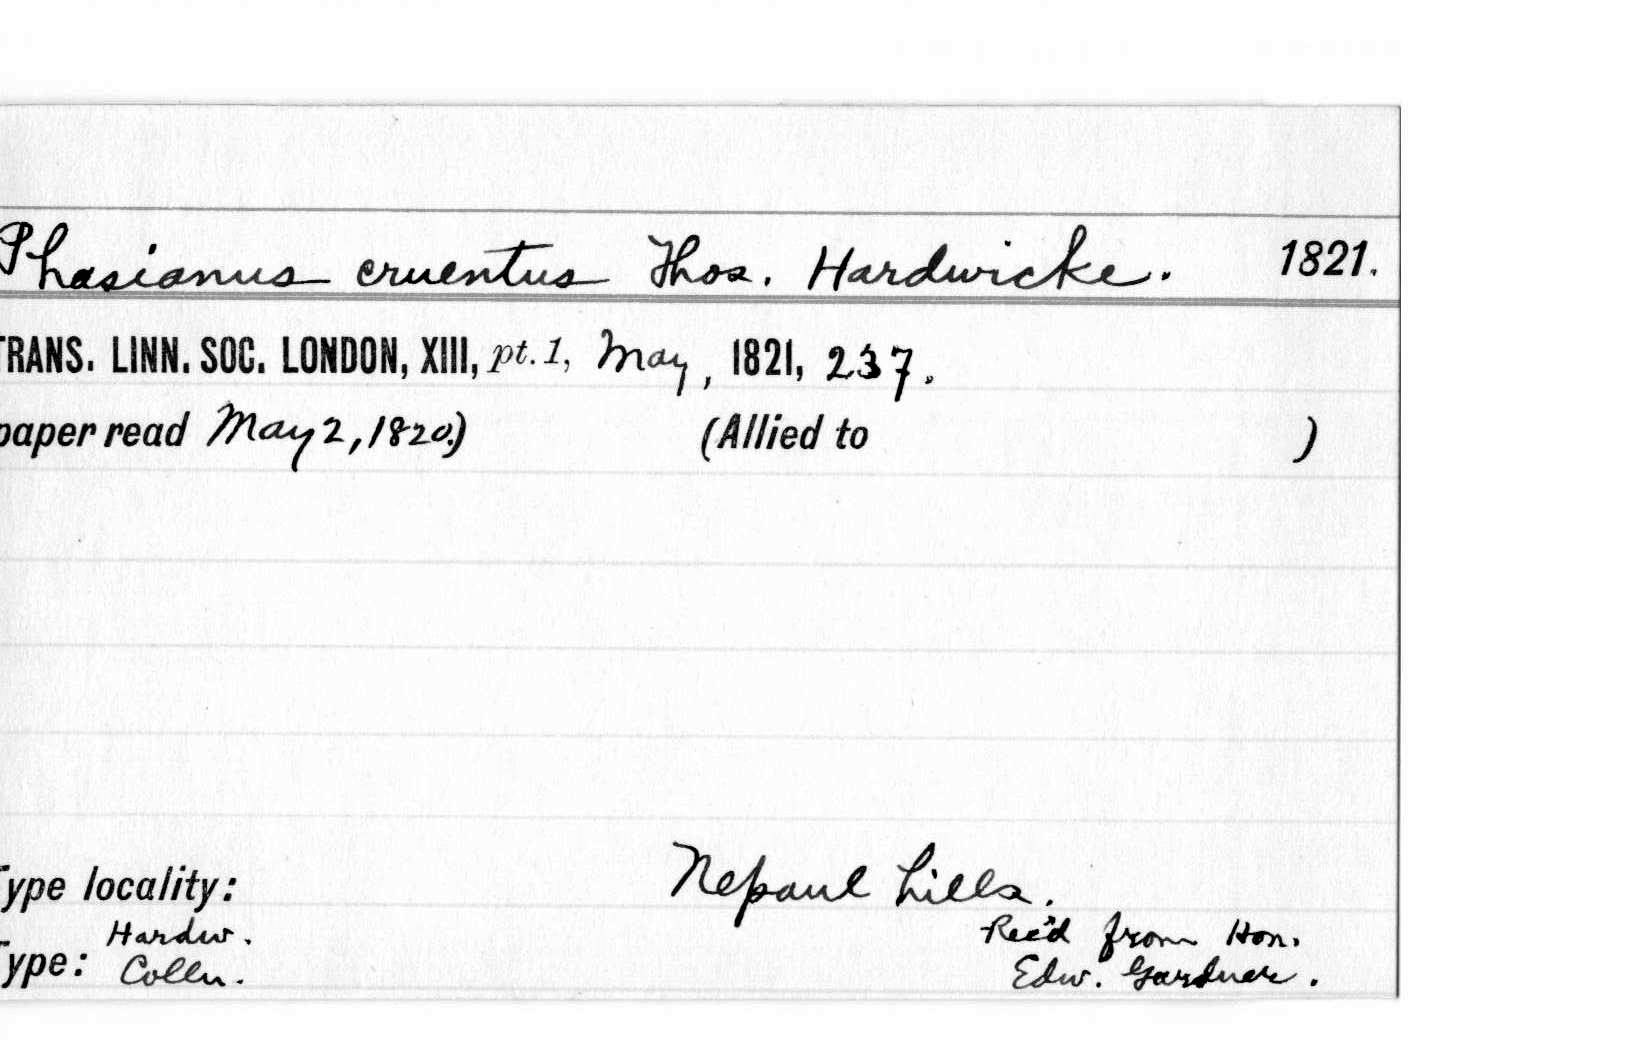 Phasianus cruentus Thos. Hardwicke. 1821.
TRANS. LINN. SOC. LONDON, XIII, pt. 1, May, 1821, 237.
paper read May 2, 1820.) (Allied to )
Type locality: Nepaul hills.
Hardw. Rec'd from Hon.
Type: Colln. Edw. Gardner.